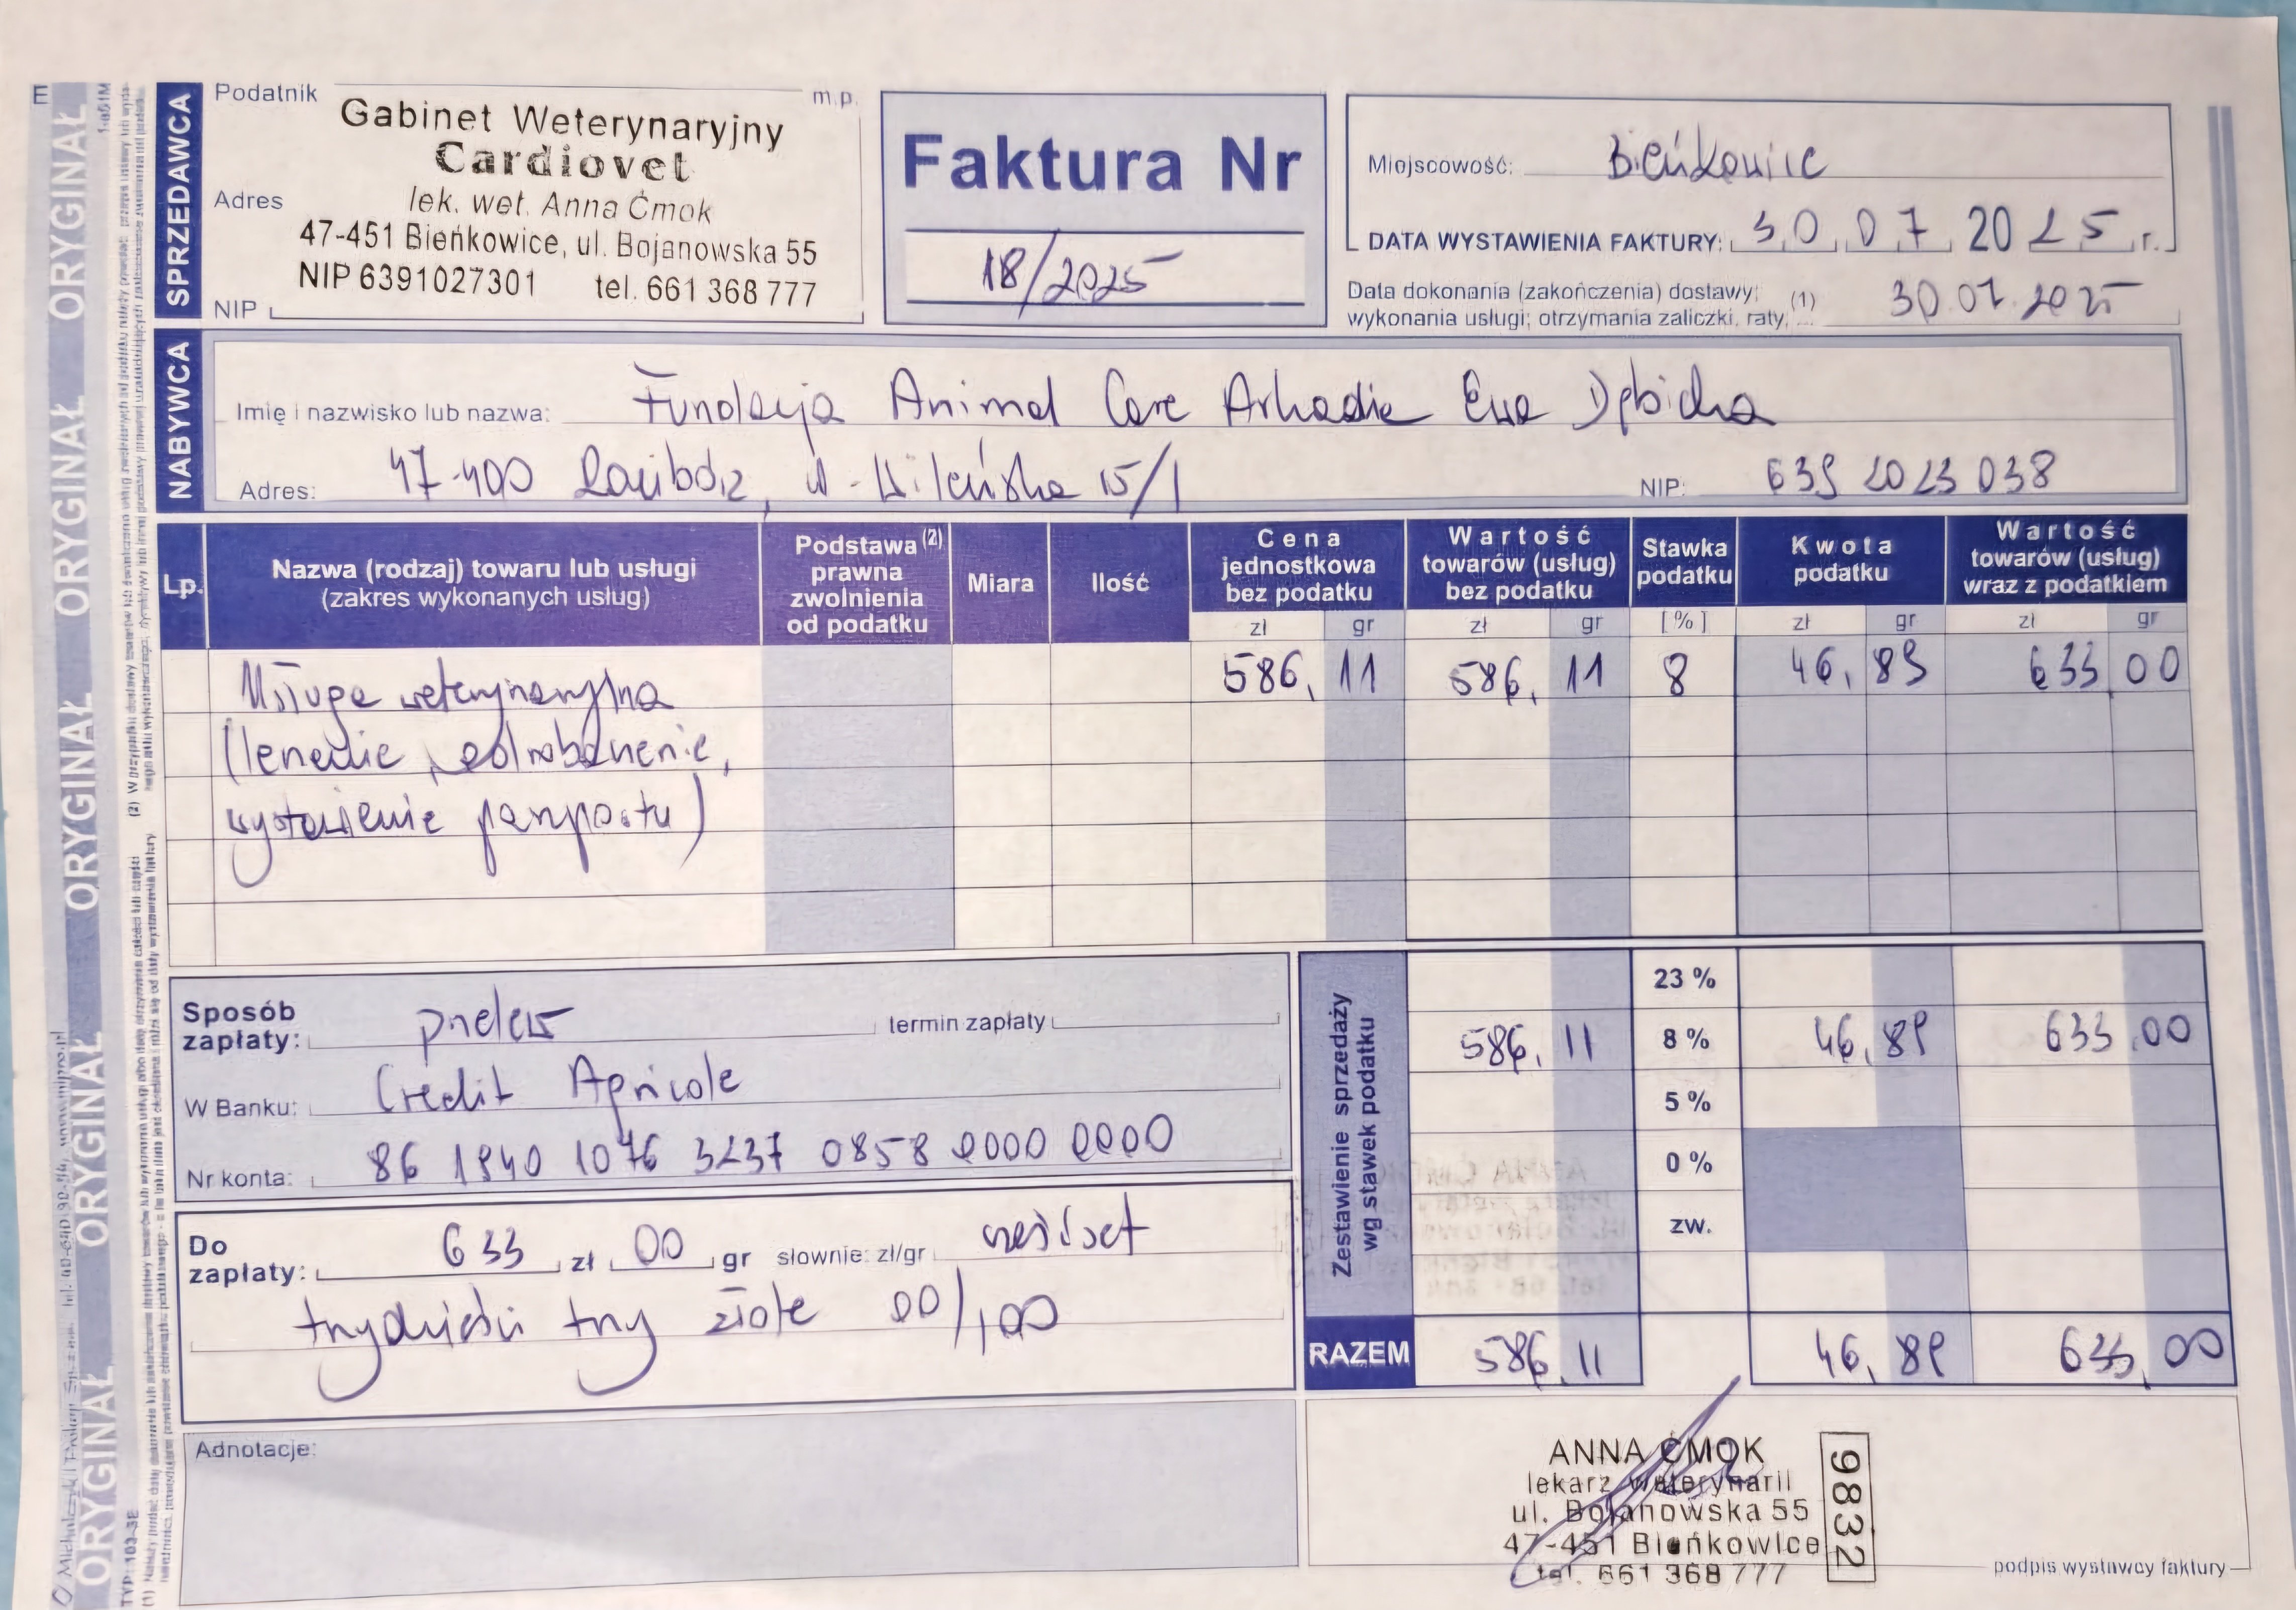 E
Podatnik
m.p.
Gabinet Weterynaryjny
Cardiovet
Adres
lek. wet. Anna Ćmok
47-451 Bieńkowice, ul. Bojanowska 55
NIP 6391027301 tel. 661 368 777
NIP
SPRZEDAWCA
Faktura Nr
18/2025
Miejscowość: Bieńkowice
DATA WYSTAWIENIA FAKTURY: 30.07.2025 r.
Data dokonania (zakończenia) dostawy; (1)
wykonania usługi; otrzymania zaliczki, raty, ... 30.07.2025
NABYWCA
Imię i nazwisko lub nazwa: Fundacja Animal Care Arkadia Ewa Dębicka
Adres: 47-400 Racibórz, ul. Wileńska 15/1 NIP: 639 2023 038
Lp. Nazwa (rodzaj) towaru lub usługi (zakres wykonanych usług)
Podstawa (2) prawna zwolnienia od podatku
Miara Ilość
Cena jednostkowa bez podatku
Wartość towarów (usług) bez podatku
Stawka podatku
Kwota podatku
Wartość towarów (usług) wraz z podatkiem
zł gr zł gr [%] zł gr zł gr
Usługa weterynaryjna 586,11 586,11 8 46,89 633 00
(leczenie, odrobaczenie,
wystawienie paszportu)
Sposób zapłaty: przelew termin zapłaty
W Banku: Credit Agricole
Nr konta: 86 1940 1076 3237 0858 0000 0000
Do zapłaty: 633 zł 00 gr słownie: zł/gr sześćset
trzydzieści trzy złote 00/100
Zestawienie sprzedaży wg stawek podatku
23 %
586,11 8 % 46,89 633,00
5 %
0 %
zw.
RAZEM 586,11 46,89 633,00
Adnotacje:
ANNA ĆMOK
lekarz weterynarii
ul. Bojanowska 55
47-451 Bieńkowice
tel. 661 368 777
9832
podpis wystawcy faktury
ORYGINAŁ ORYGINAŁ ORYGINAŁ ORYGINAŁ ORYGINAŁ ORYGINAŁ
TYP: 103-3E